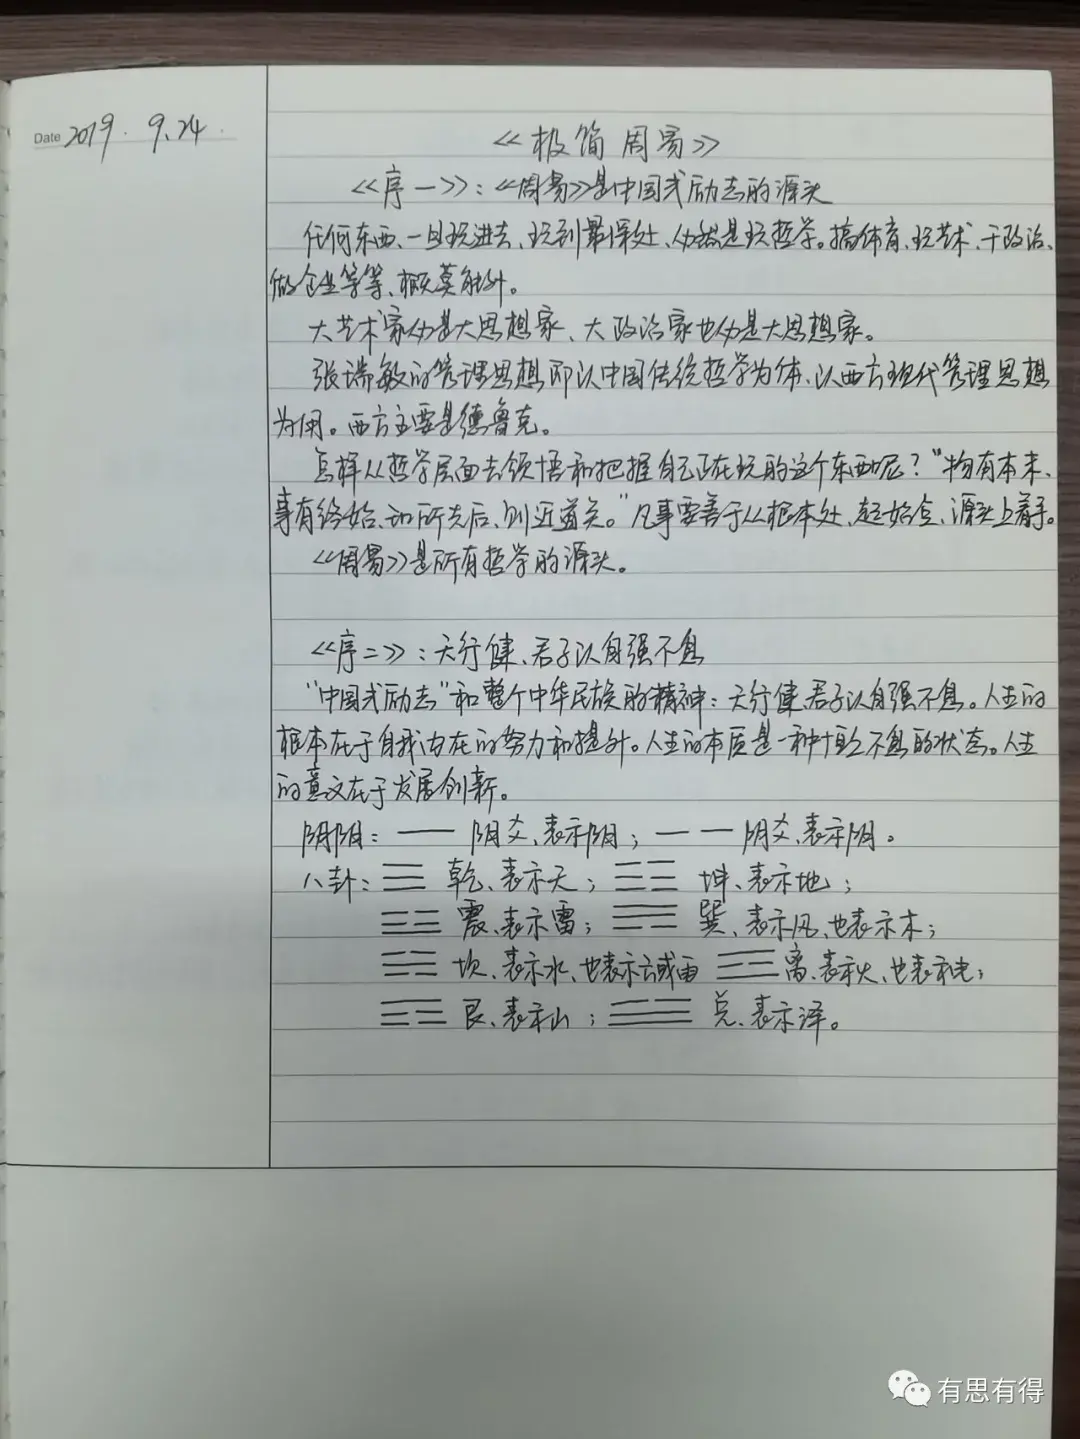 Date 2019. 9.24
《极简周易》
《序一》：《周易》是中国式励志的源头
任何东西、一旦玩进去、玩到最深处、必然是玩哲学。搞体育、玩艺术、干政治、
做企业等等、概莫能外。
大艺术家必是大思想家、大政治家也必是大思想家。
张瑞敏的管理思想即以中国传统哲学为体、以西方现代管理思想
为用。西方主要是德鲁克。
怎样从哲学层面去领悟和把握自己正在玩的这个东西呢？“物有本末、
事有终始、知所先后、则近道矣。”凡事要善于从根本处、起始点、源头上着手。
《周易》是所有哲学的源头。
《序二》：天行健、君子以自强不息
“中国式励志”和整个中华民族的精神：天行健、君子以自强不息。人生的
根本在于自我内在的努力和提升。人生的本质是一种恒久不息的状态。人生
的意义在于发展创新。
阴阳：— 阳爻、表示阳；-- 阴爻、表示阴。
八卦：☰ 乾、表示天；☷ 坤、表示地；
☳ 震、表示雷；☴ 巽、表示风、也表示木；
☵ 坎、表示水、也表示云或雨 ☲ 离、表示火、也表示电；
☶ 艮、表示山；☱ 兑、表示泽。
有思有得